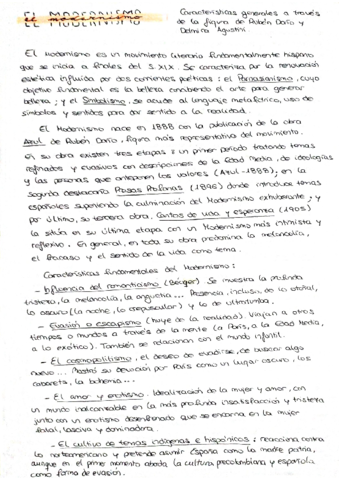 EL MODERNISMO
Características generales a través
de la figura de Rubén Darío y
Delmira Agustini
El Modernismo es un movimiento literario fundamentalmente hispano
que se inicia a finales del S.XIX. Se caracteriza por la renovación
estética influida por dos corrientes poéticas: el Parnasianismo, cuyo
objetivo fundamental es la belleza concibiendo el arte para generar
belleza; y el Simbolismo, se acude al lenguaje metafórico, uso de
símbolos y sentidos para dar sentido a la realidad.
El Modernismo nace en 1888 con la publicación de la obra
Azul de Rubén Darío, figura más representativa del movimiento.
En su obra existen tres etapas: un primer periodo tratando temas
refinados y evasivos con descripciones de la Edad Media, de ideologías
y las personas que anteponen los valores (Azul-1888), en la
segunda destacaría Prosas Profanas (1896) donde introduce temas
españoles suponiendo la culminación del Modernismo exhuberante; y
por último, su tercera obra, Cantos de vida y esperanza (1905)
la sitúa en su última etapa con un Modernismo más intimista y
reflexivo. En general, en toda su obra predomina la melancolía,
el fracaso y el sentido de la vida como tema.
Características fundamentales del Modernismo:
- Influencia del romanticismo (Bécquer). Se muestra la profunda
tristeza, la melancolía, la angustia... Presencia, inclusive, de lo otoñal,
lo oscuro (la noche, lo crepuscular) y lo de ultratumba.
- Evasión o escapismo (huye de la realidad). Viajan a otros
tiempos o mundos a través de la mente (a París, a la Edad Media,
a lo exótico). También se relacionan con el mundo infantil.
- El cosmopolitismo, el deseo de evadirse, de buscar algo
nuevo... Mostró su devoción por París como un lugar oscuro, los
cabarets, la bohemia...
- El amor y erotismo. Idealización de la mujer y amor, con
un mundo inalcanzable en la más profunda insatisfacción y tristeza
junto con un erotismo desenfrenado que se encarna en la mujer
fatal, lasciva y dominadora.
- El cultivo de temas indígenas e hispánicos: reacciona contra
lo norteamericano y pretende asumir España como la madre patria,
aunque en el primer momento aborda la cultura precolombina y española
como forma de evasión.